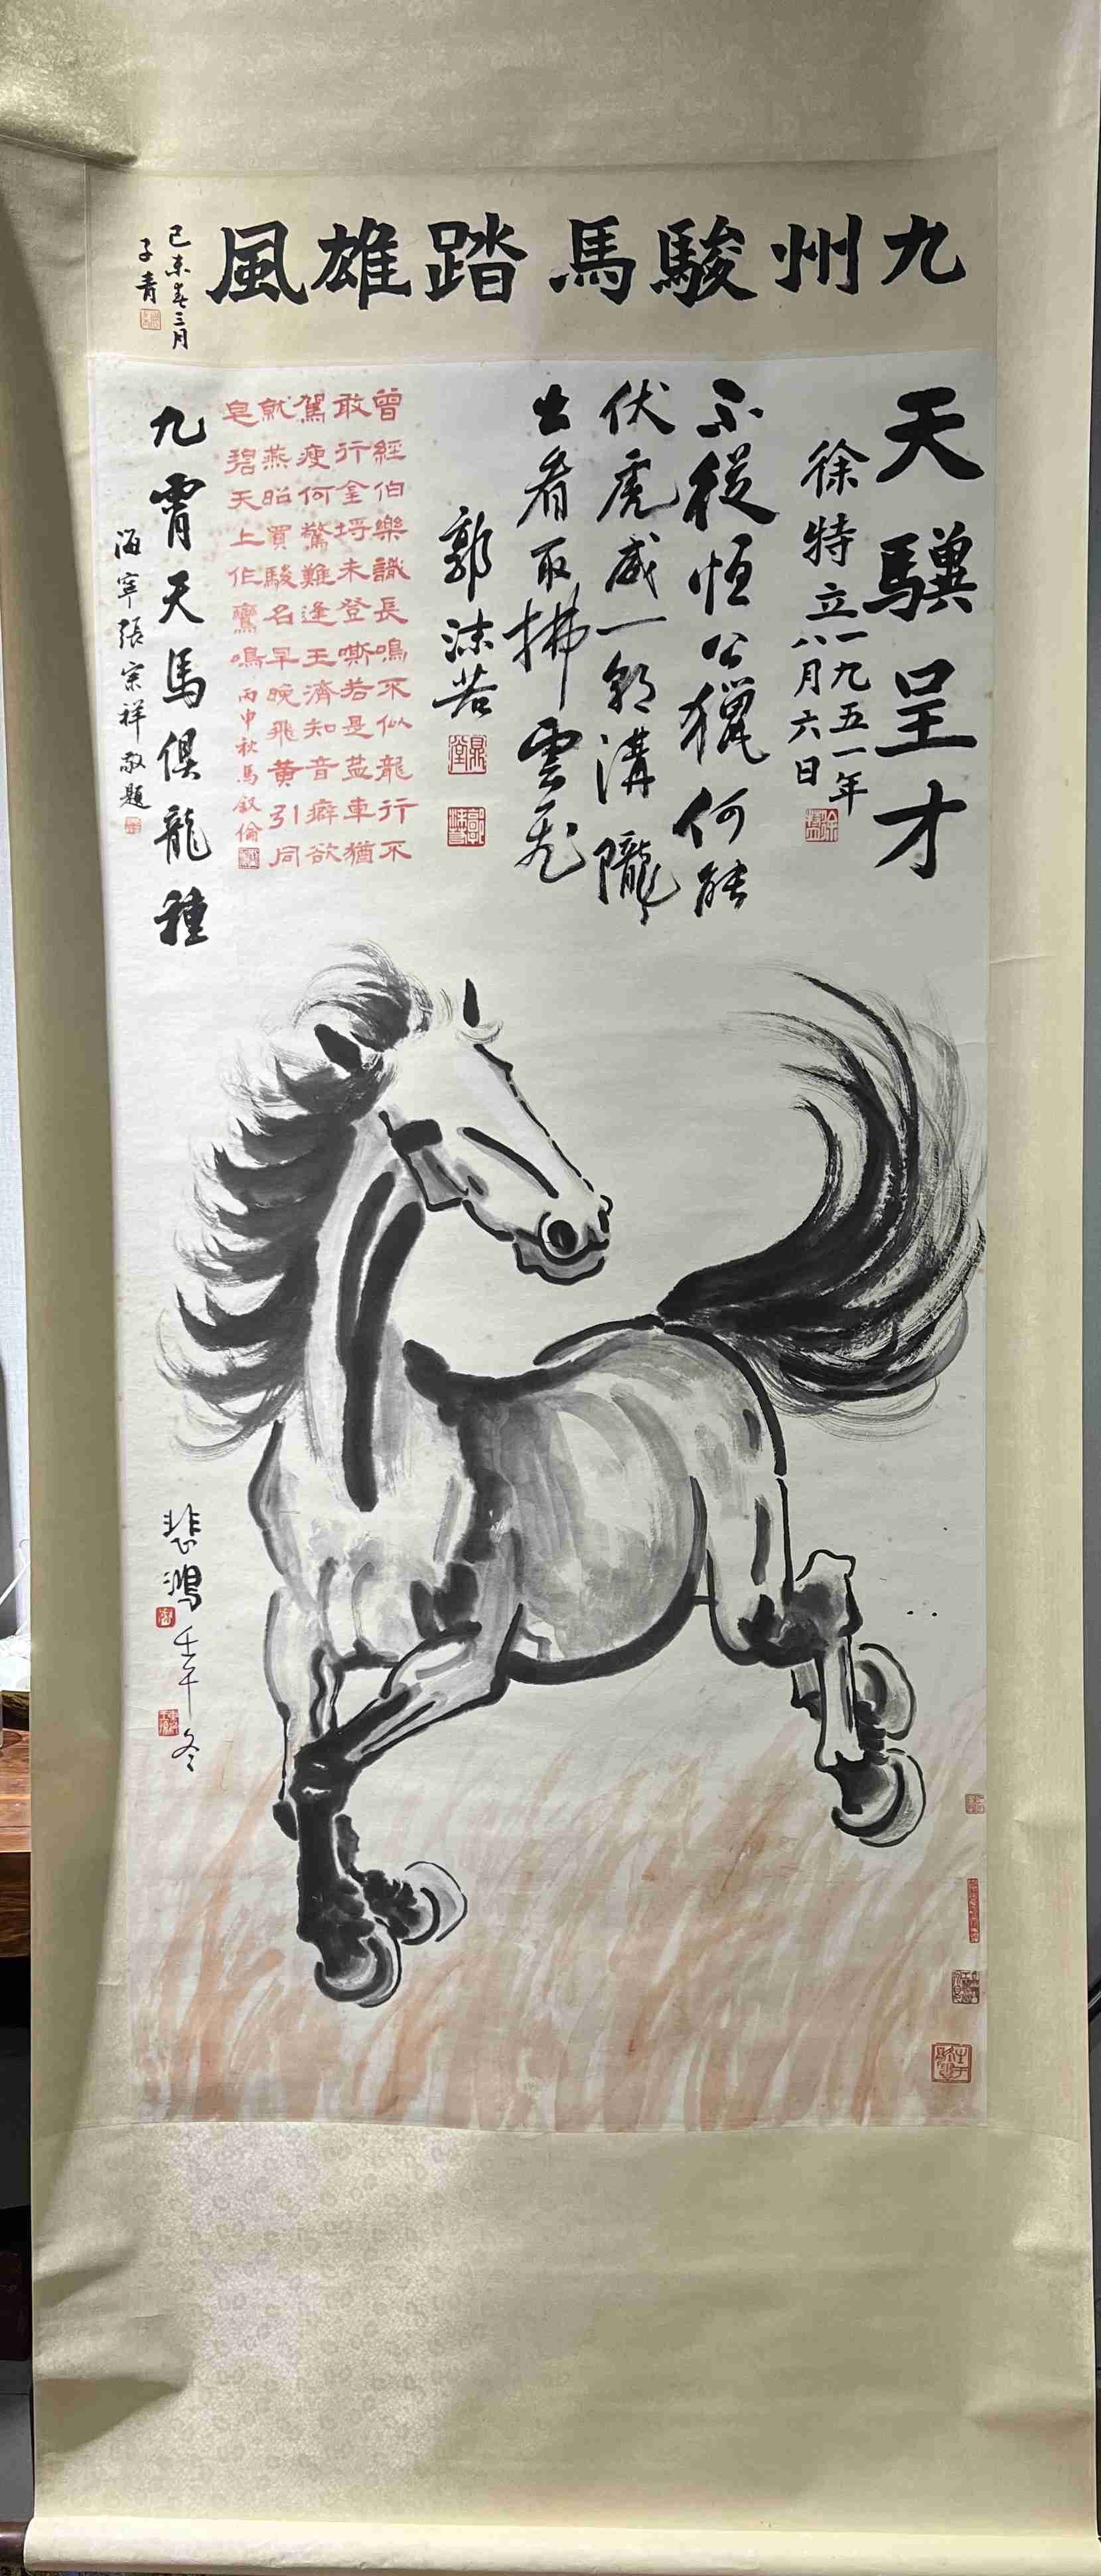 九州駿馬踏雄風
己未春三月
子青
天驥呈才
徐特立
一九五一年
八月六日
不從恒公獵何能
伏虎威一朝溝隴
出看取拂雲飛
郭沫若
曾經伯樂識長鳴不似龍行不
敢行金埒未登嘶若是盐車猶
駕瘦何驚難逢王濟知音癖欲
就燕昭買駿名早晚飛黃引同
皂碧天上作鸞鳴丙申秋馬叙倫
九霄天馬俱龍種
海寧張宗祥敬題
悲鴻
壬午冬